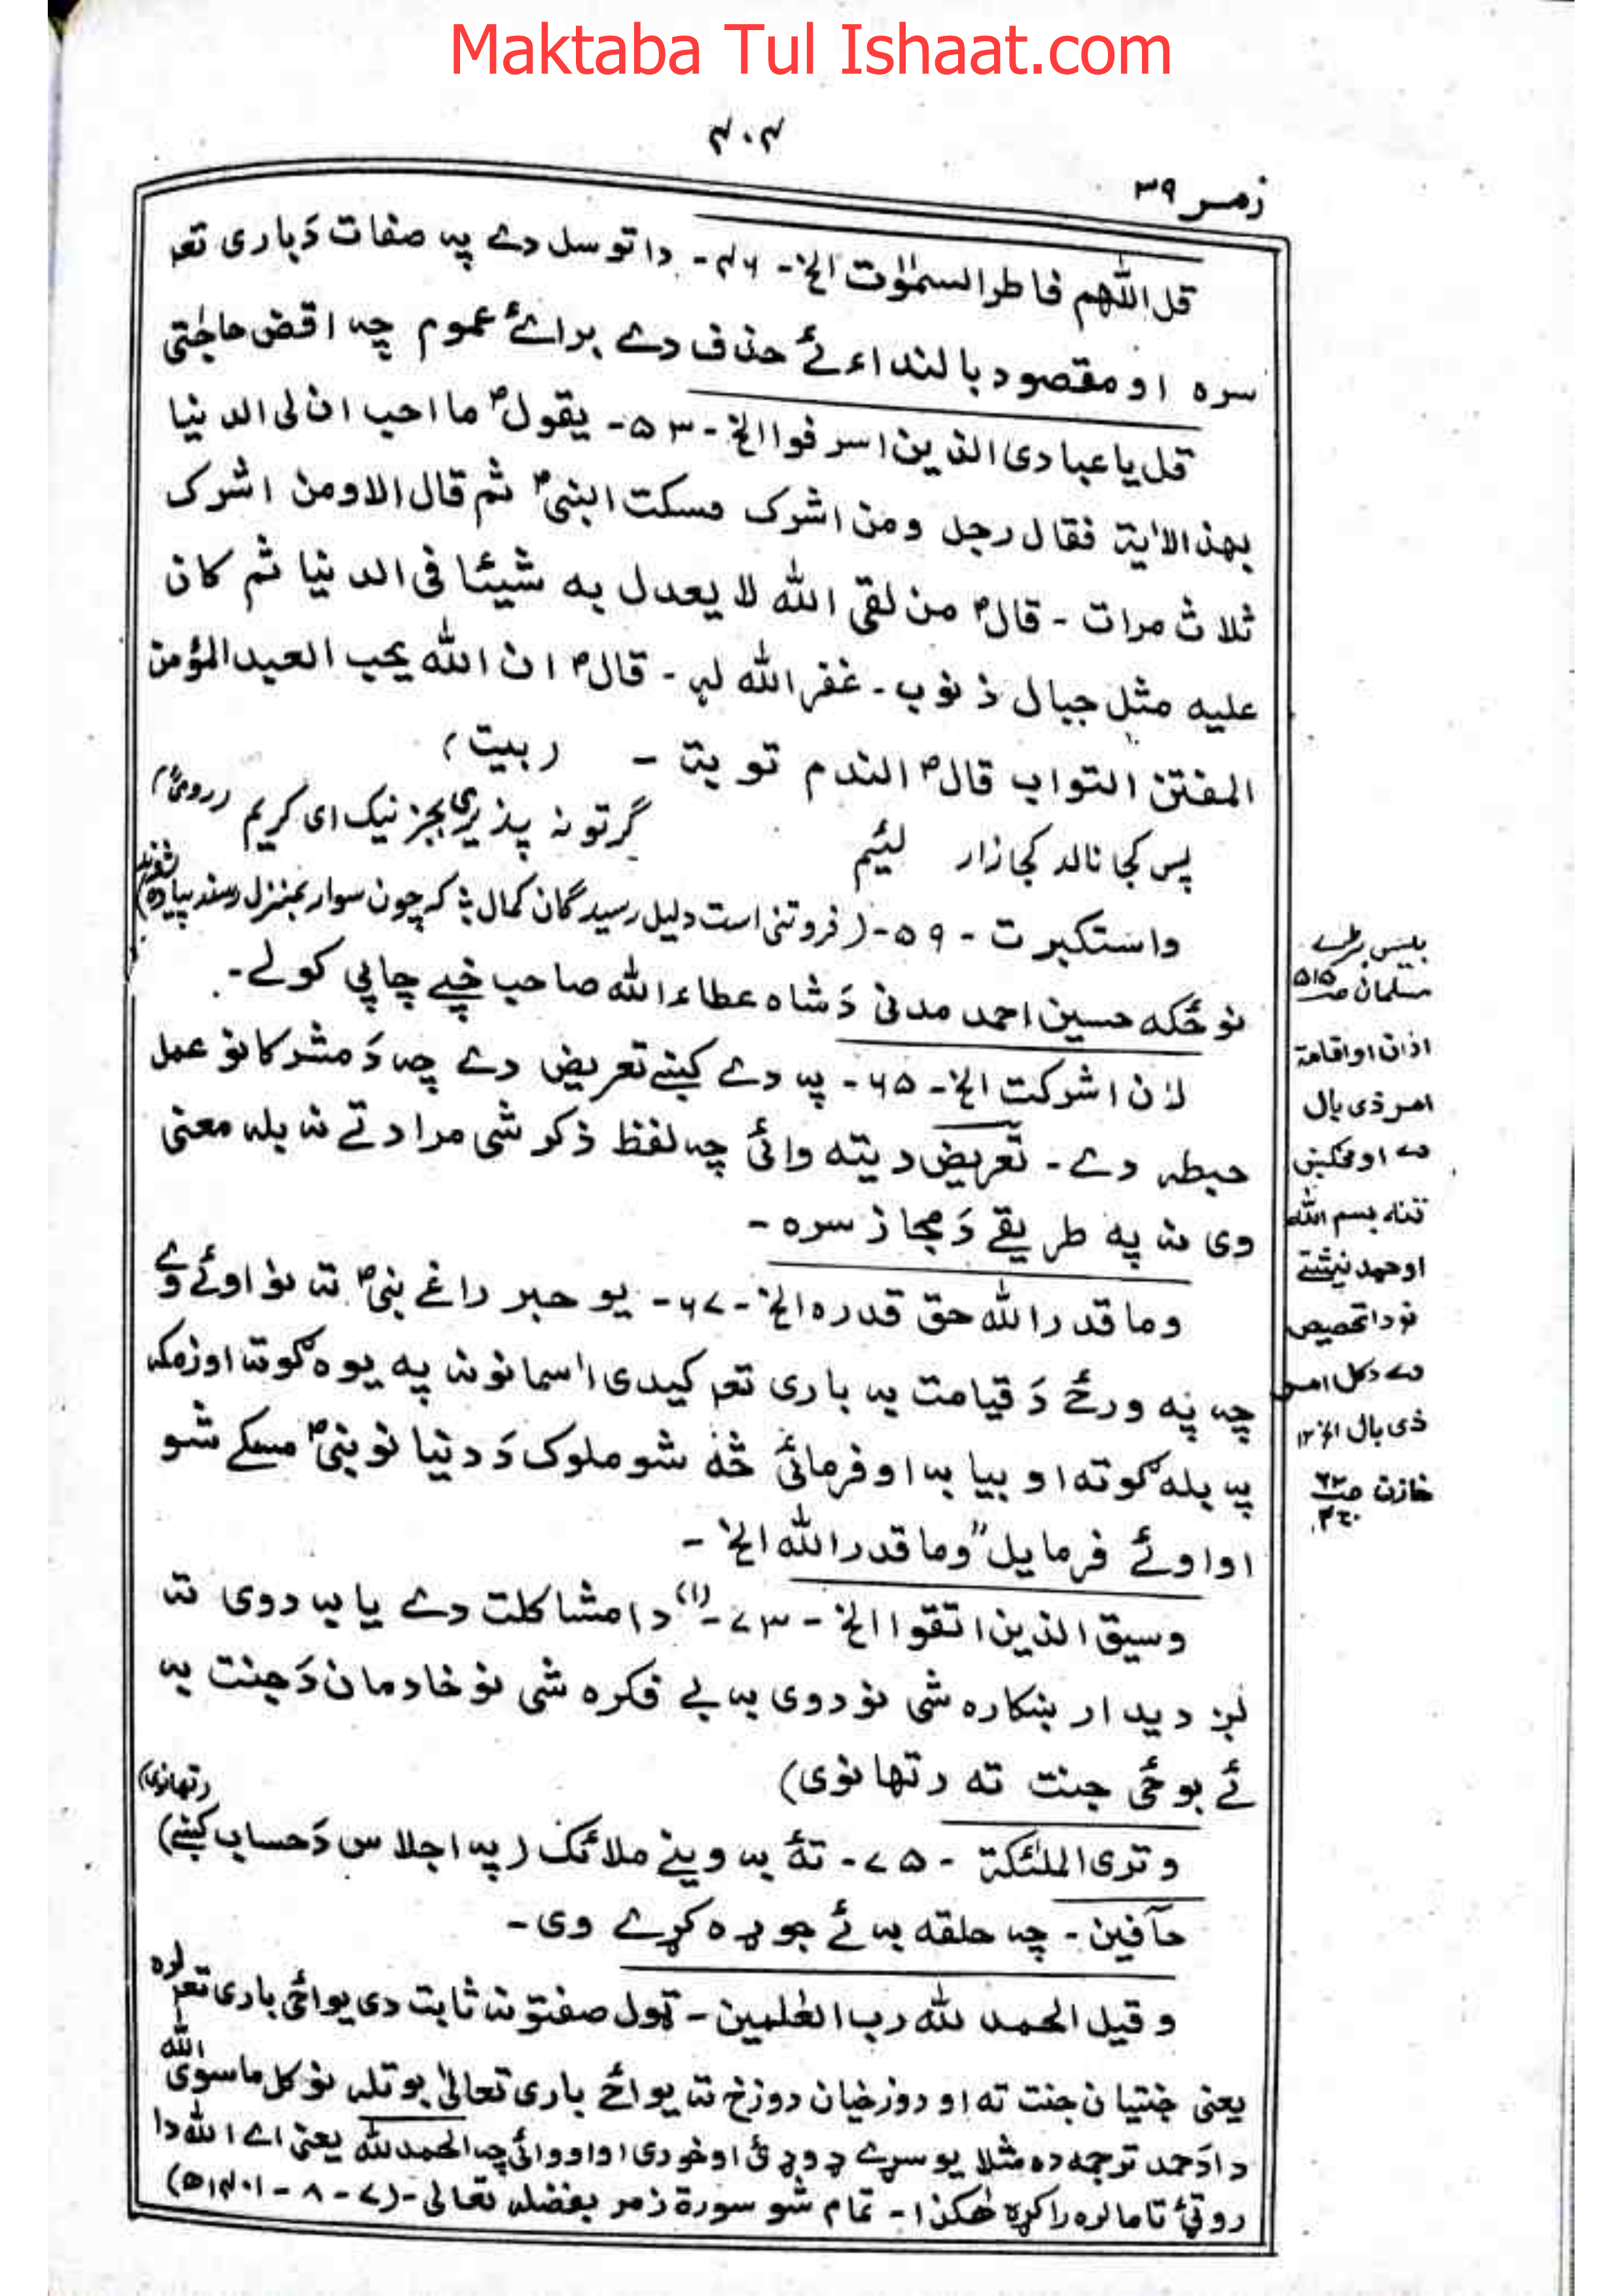 Maktaba Tul Ishaat.com
۴۰۴
زمر ۳۹
قل اللّٰهم فاطر السمٰوٰت الخ - ۴۶ - دا توسل دے پہ صفات دَ باری تعہ
سرہ او مقصود بالنداء ئے حذف دے برائے عموم چہ اقض حاجتی
قل یا عبادی الذین اسرفوا الخ - ۵۳ - یقول ؐ ما احب ان لی الدنیا
بهذ الاٰیة فقال رجل ومن اشرک فسکت النبی ؐ ثم قال الا ومن اشرک
ثلاث مرات - قال ؐ من لقی الله لا یعدل به شیئا فی الدنیا ثم کان
علیه مثل جبال ذنوب - غفر الله له - قال ؐ ان الله یحب العبد المؤمن
المفتن التواب قال ؐ الندم توبة - (بیت)
گر تو نہ پذیری بجز نیک ای کریم (رومیؒ)
پس کجا نالد کجا زار لئیم
واستکبرت - ۵۹ - (فروتنی است دلیل رسیدگان کمال * کہ چون سوار بمنزل رسد پیادہ شود)
نو ځکه حسین احمد مدنی دَ شاہ عطاء الله صاحب خپے چاپی کولے -
لئن اشرکت الخ - ۶۵ - پہ دے کښے تعریض دے چہ دَ مشرکانو عمل
حبطہ دے - تعریض دیتہ وائی چہ لفظ ذکر شی مراد ترے نہ بلہ معنی
وی نہ پہ طریقے دَ مجاز سرہ -
وما قدر الله حق قدرہ الخ - ۶۷ - یو حبر راغے نبی ؐ تہ نو اوئے وے
چہ پہ ورځ دَ قیامت بہ باری تعہ کیدی اٰسمانونہ پہ یوہ ګوتہ او زمکہ
پہ بلہ ګوتہ او بیا بہ او فرمائی څہ شو ملوک دَ دنیا نو نبی ؐ مسکے شو
او اوئے فرمایل "وما قدر الله الخ -
وسیق الذین اتقوا الخ - ۷۳ - (۱) دا مشاکلت دے یا بہ دوی تہ
لږ دیدار ښکارہ شی نو دوی بہ بے فکرہ شی نو خادمان دَ جنت بہ
ئے بوځی جنت تہ (تهانوی)
وتری الملٰئکة - ۷۵ - تہٗ بہ وینے ملائک (پہ اجلاس دَ حساب کښے) (تهانوی)
حآفین - چہ حلقہ بہ ئے جوړہ کړے وی -
وقیل الحمد لله رب العٰلمین - ټول صفتونہ ثابت دی یواځی باری تعہ لرہ
یعنی جنتیان جنت تہ او دوزخیان دوزخ تہ یواځے باری تعالیٰ بوتلہ نو کل ما سوی الله
دا دَ حمد ترجمہ دہ مثلا یو سړے ډوډئ او خوری او او وائی چہ الحمد لله یعنی اے الله دا
روټئ تا مالرہ راکړہ هٰکذا - تمام شو سورة زمر بفضلہ تعالی - (۷ - ۸ - ۱۴۰۱ھ)
بیس بڑے
مسلمان صـ ۵۱۵
اذان او اقامة
امر ذی بال
دے او مخکښی
تنہ بسم الله
او حمد نیشتے
نو دا تخصیص
دے دکل امر
ذی بال الخ ۱۲
خازن صـ ۷۲